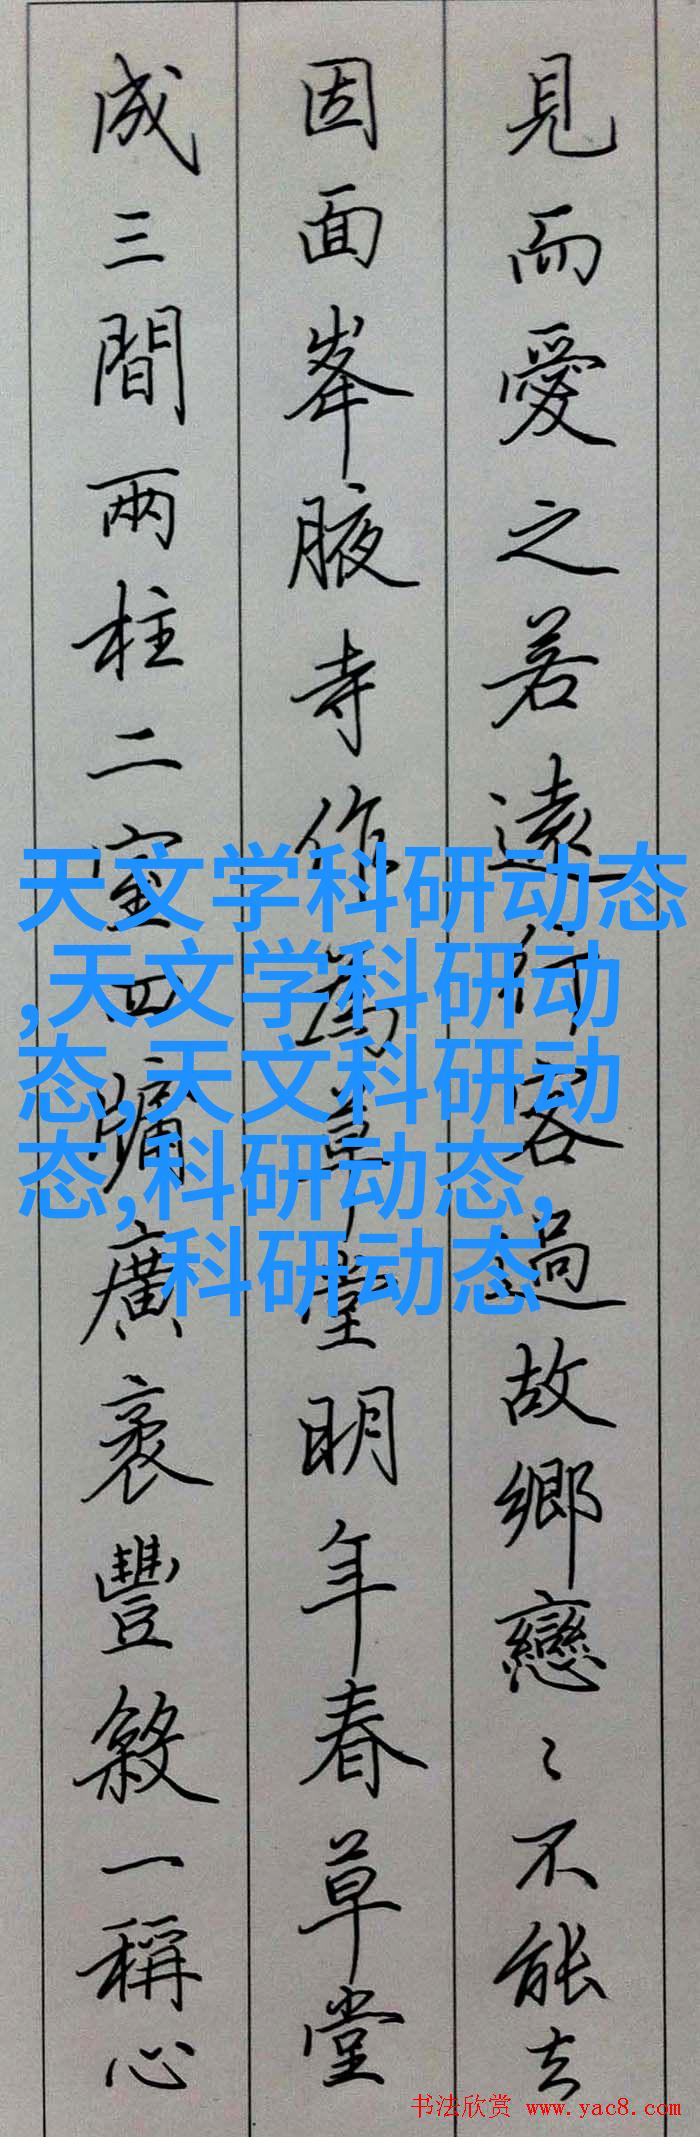 見而愛之若遠行客過故鄉戀〻不能去
因面峯腋寺作為草堂明年春草堂
成三間兩柱二室四牖廣袤豐殺一稱心
天文学科研动态
,天文学科研动
态,天文科研动
态,科研动态,
科研动态
书法欣赏 www.yac8.com